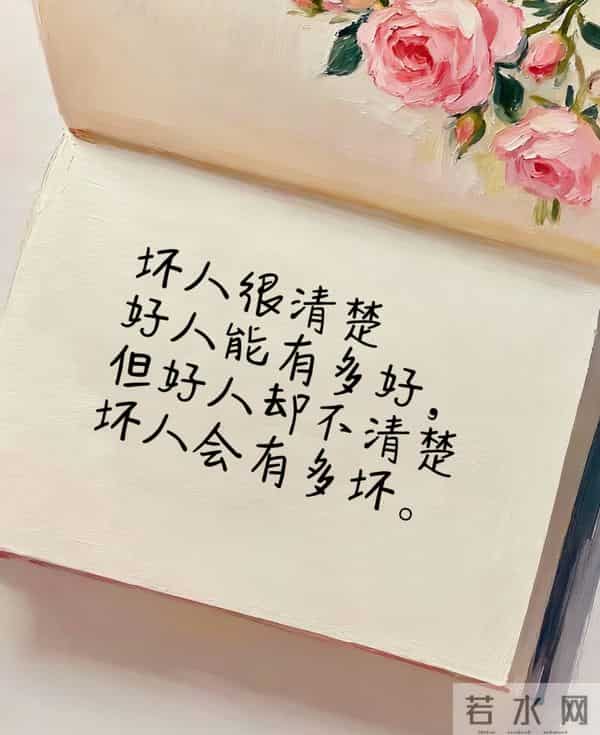 坏人很清楚
好人能有多好，
但好人却不清楚
坏人会有多坏。
若水网